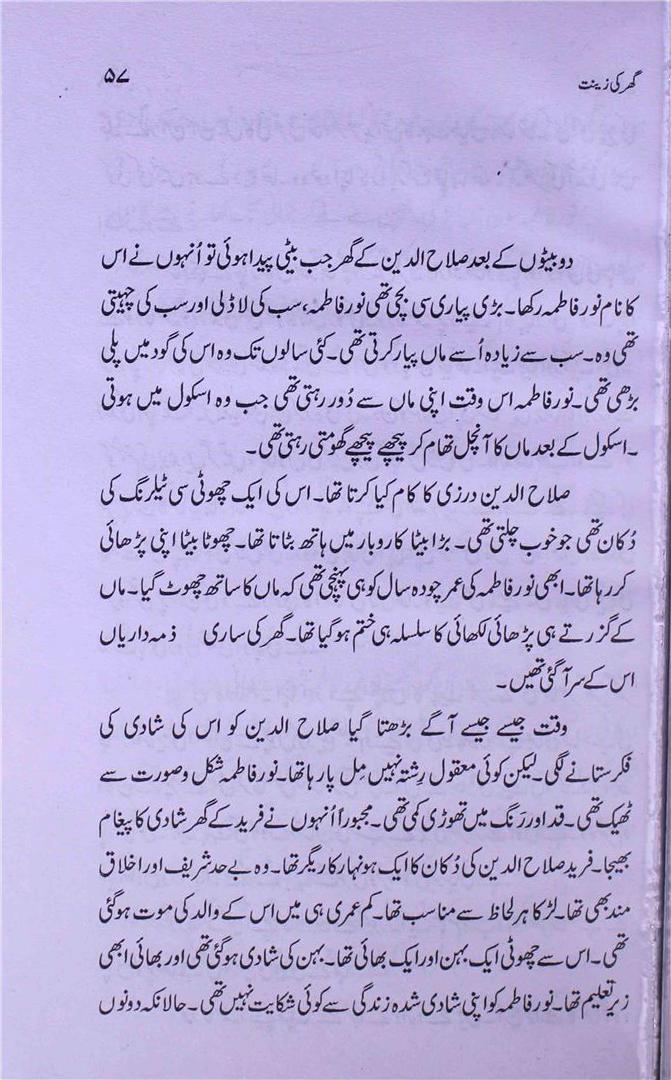 گھر کی زینت ۵۷
دو بیٹوں کے بعد صلاح الدین کے گھر جب بیٹی پیدا ہوئی تو اُنہوں نے اس
کا نام نور فاطمہ رکھا۔ بڑی پیاری سی بچی تھی نور فاطمہ، سب کی لاڈلی اور سب کی چہیتی
تھی وہ۔ سب سے زیادہ اُسے ماں پیار کرتی تھی۔ کئی سالوں تک وہ اس کی گود میں پلی
بڑھی تھی۔ نور فاطمہ اس وقت اپنی ماں سے دُور رہتی تھی جب وہ اسکول میں ہوتی
۔ اسکول کے بعد ماں کا آنچل تھام کر پیچھے پیچھے گھومتی رہتی تھی۔
صلاح الدین درزی کا کام کیا کرتا تھا۔ اس کی ایک چھوٹی سی ٹیلرنگ کی
دُکان تھی جو خوب چلتی تھی۔ بڑا بیٹا کاروبار میں ہاتھ بٹاتا تھا۔ چھوٹا بیٹا اپنی پڑھائی
کر رہا تھا۔ ابھی نور فاطمہ کی عمر چودہ سال کو ہی پہنچی تھی کہ ماں کا ساتھ چھوٹ گیا۔ ماں
کے گزرتے ہی پڑھائی لکھائی کا سلسلہ ہی ختم ہو گیا تھا۔ گھر کی ساری ذمہ داریاں
اس کے سر آ گئی تھیں۔
وقت جیسے جیسے آگے بڑھتا گیا صلاح الدین کو اس کی شادی کی
فکر ستانے لگی۔ لیکن کوئی معقول رِشتہ نہیں مِل پا رہا تھا۔ نور فاطمہ شکل و صورت سے
ٹھیک تھی۔ قد اور رَنگ میں تھوڑی کمی تھی۔ مجبوراً اُنہوں نے فرید کے گھر شادی کا پیغام
بھیجا۔ فرید صلاح الدین کی دُکان کا ایک ہونہار کاریگر تھا۔ وہ بے حد شریف اور اخلاق
مند بھی تھا۔ لڑکا ہر لحاظ سے مناسب تھا۔ کم عمری ہی میں اس کے والد کی موت ہو گئی
تھی۔ اس سے چھوٹی ایک بہن اور ایک بھائی تھا۔ بہن کی شادی ہو گئی تھی اور بھائی ابھی
زیرِ تعلیم تھا۔ نور فاطمہ کو اپنی شادی شدہ زندگی سے کوئی شکایت نہیں تھی۔ حالانکہ دونوں